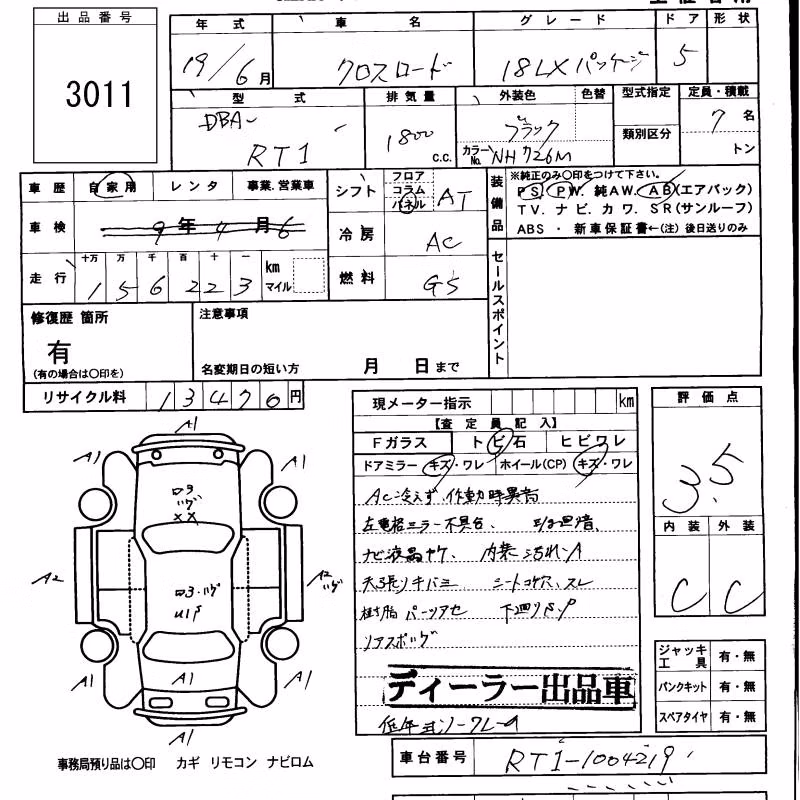 出品番号
3011
年式 車名 グレード ドア 形状
19/6月 クロスロード 18LX パッケージ 5
型式 排気量 外装色 色替 型式指定 定員・積載
DBA- 1800 c.c. ブラック 類別区分 7名
RT1 カラーNo. NH726M トン
車歴 自家用 レンタ 事業.営業車
シフト フロア コラム パネル AT
車検 9年4月6
冷房 AC
走行 十万 万 千 百 十 一 km マイル
156223
燃料 GS
装備品
※純正のみ〇印をつけて下さい。
PS. PW. 純AW. AB(エアバック)
TV. ナビ. カワ. SR(サンルーフ)
ABS ・ 新車保証書←(注) 後日送りのみ
セールスポイント
修復歴 箇所
有
(有の場合は〇印を)
注意事項
名変期日の短い方 月 日まで
リサイクル料 13470円
現メーター指示 km
【査定員記入】
Fガラス トビ石 ヒビワレ
ドアミラー キズ・ワレ ホイール(CP) キズ・ワレ
AC冷えず 作動時異音
左電格ミラー不具合、
ナビ液晶ヤケ、 内装汚れ-A
シートコゲ穴、スレ
樹脂パーツアセ 下廻りS.P
ディーラー出品車
評価点
3.5
内装 外装
C C
ジャッキ工具 有・無
パンクキット 有・無
スペアタイヤ 有・無
A1
A1 A1
A2 A2
A1 A1 A1
A1
事務局預り品は〇印 カギ リモコン ナビロム
車台番号 RT1-1004219